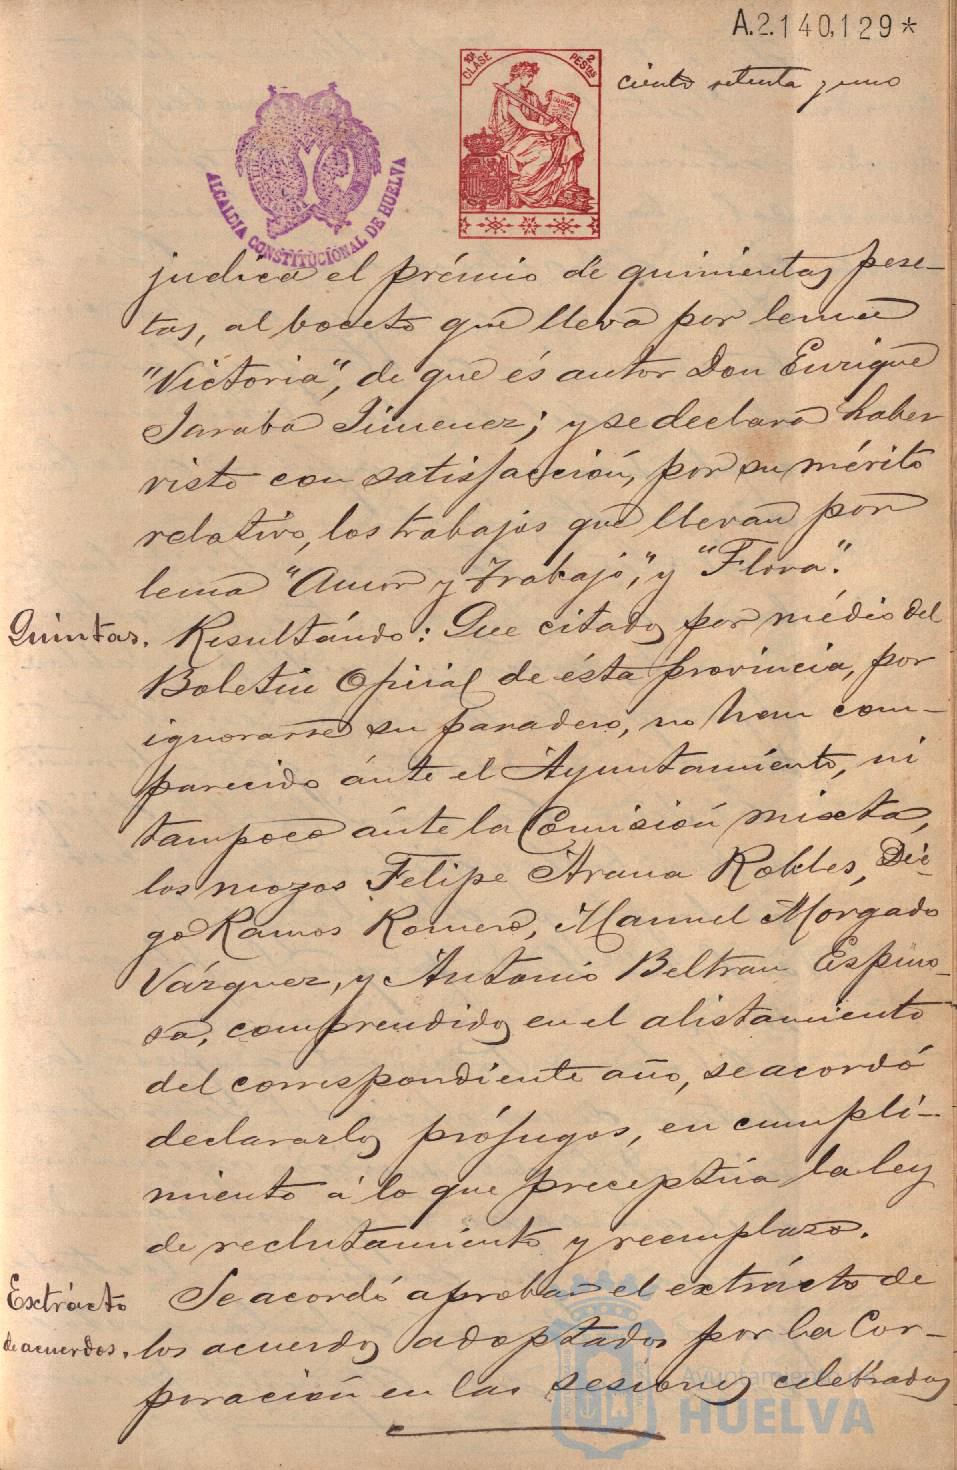 A.2.140,129*
10ª CLASE 2 PESTAS
CODIGO
ciento setenta y uno
ALCALDIA CONSTITUCIONAL DE HUELVA
judica el prémio de quinientas pese-
tas, al boceto que lleva por lema
"Victoria", de que és autor Don Enrique
Jaraba Jimenez; y se declara haber
visto con satisfacción, por su mérito
relativo, los trabajos que llevan por
lema "Amor y Trabajo", y "Flora".
Quintas. Resultándo: Que citados por médio del
Boletin Oficial de ésta provincia, por
ignorarse su paradero, no han com-
parecido ánte el Ayuntamiento, ni
tampoco ánte la Comisión mixta,
los mozos Felipe Arana Robles, Die-
go Ramos Romero, Manuel Morgado
Vázquez, y Antonio Beltran Espino-
sa, comprendidos en el alistamiento
del correspondiente año, se acordó
declararlos prófugos, en cumpli-
miento á lo que preceptúa la ley
de reclutamiento y reemplazo.
Extrácto Se acordó aprobar el extrácto de
de acuerdos. los acuerdos adoptados por la Cor-
poración en las sesiones celebradas
Ayuntamiento de
HUELVA